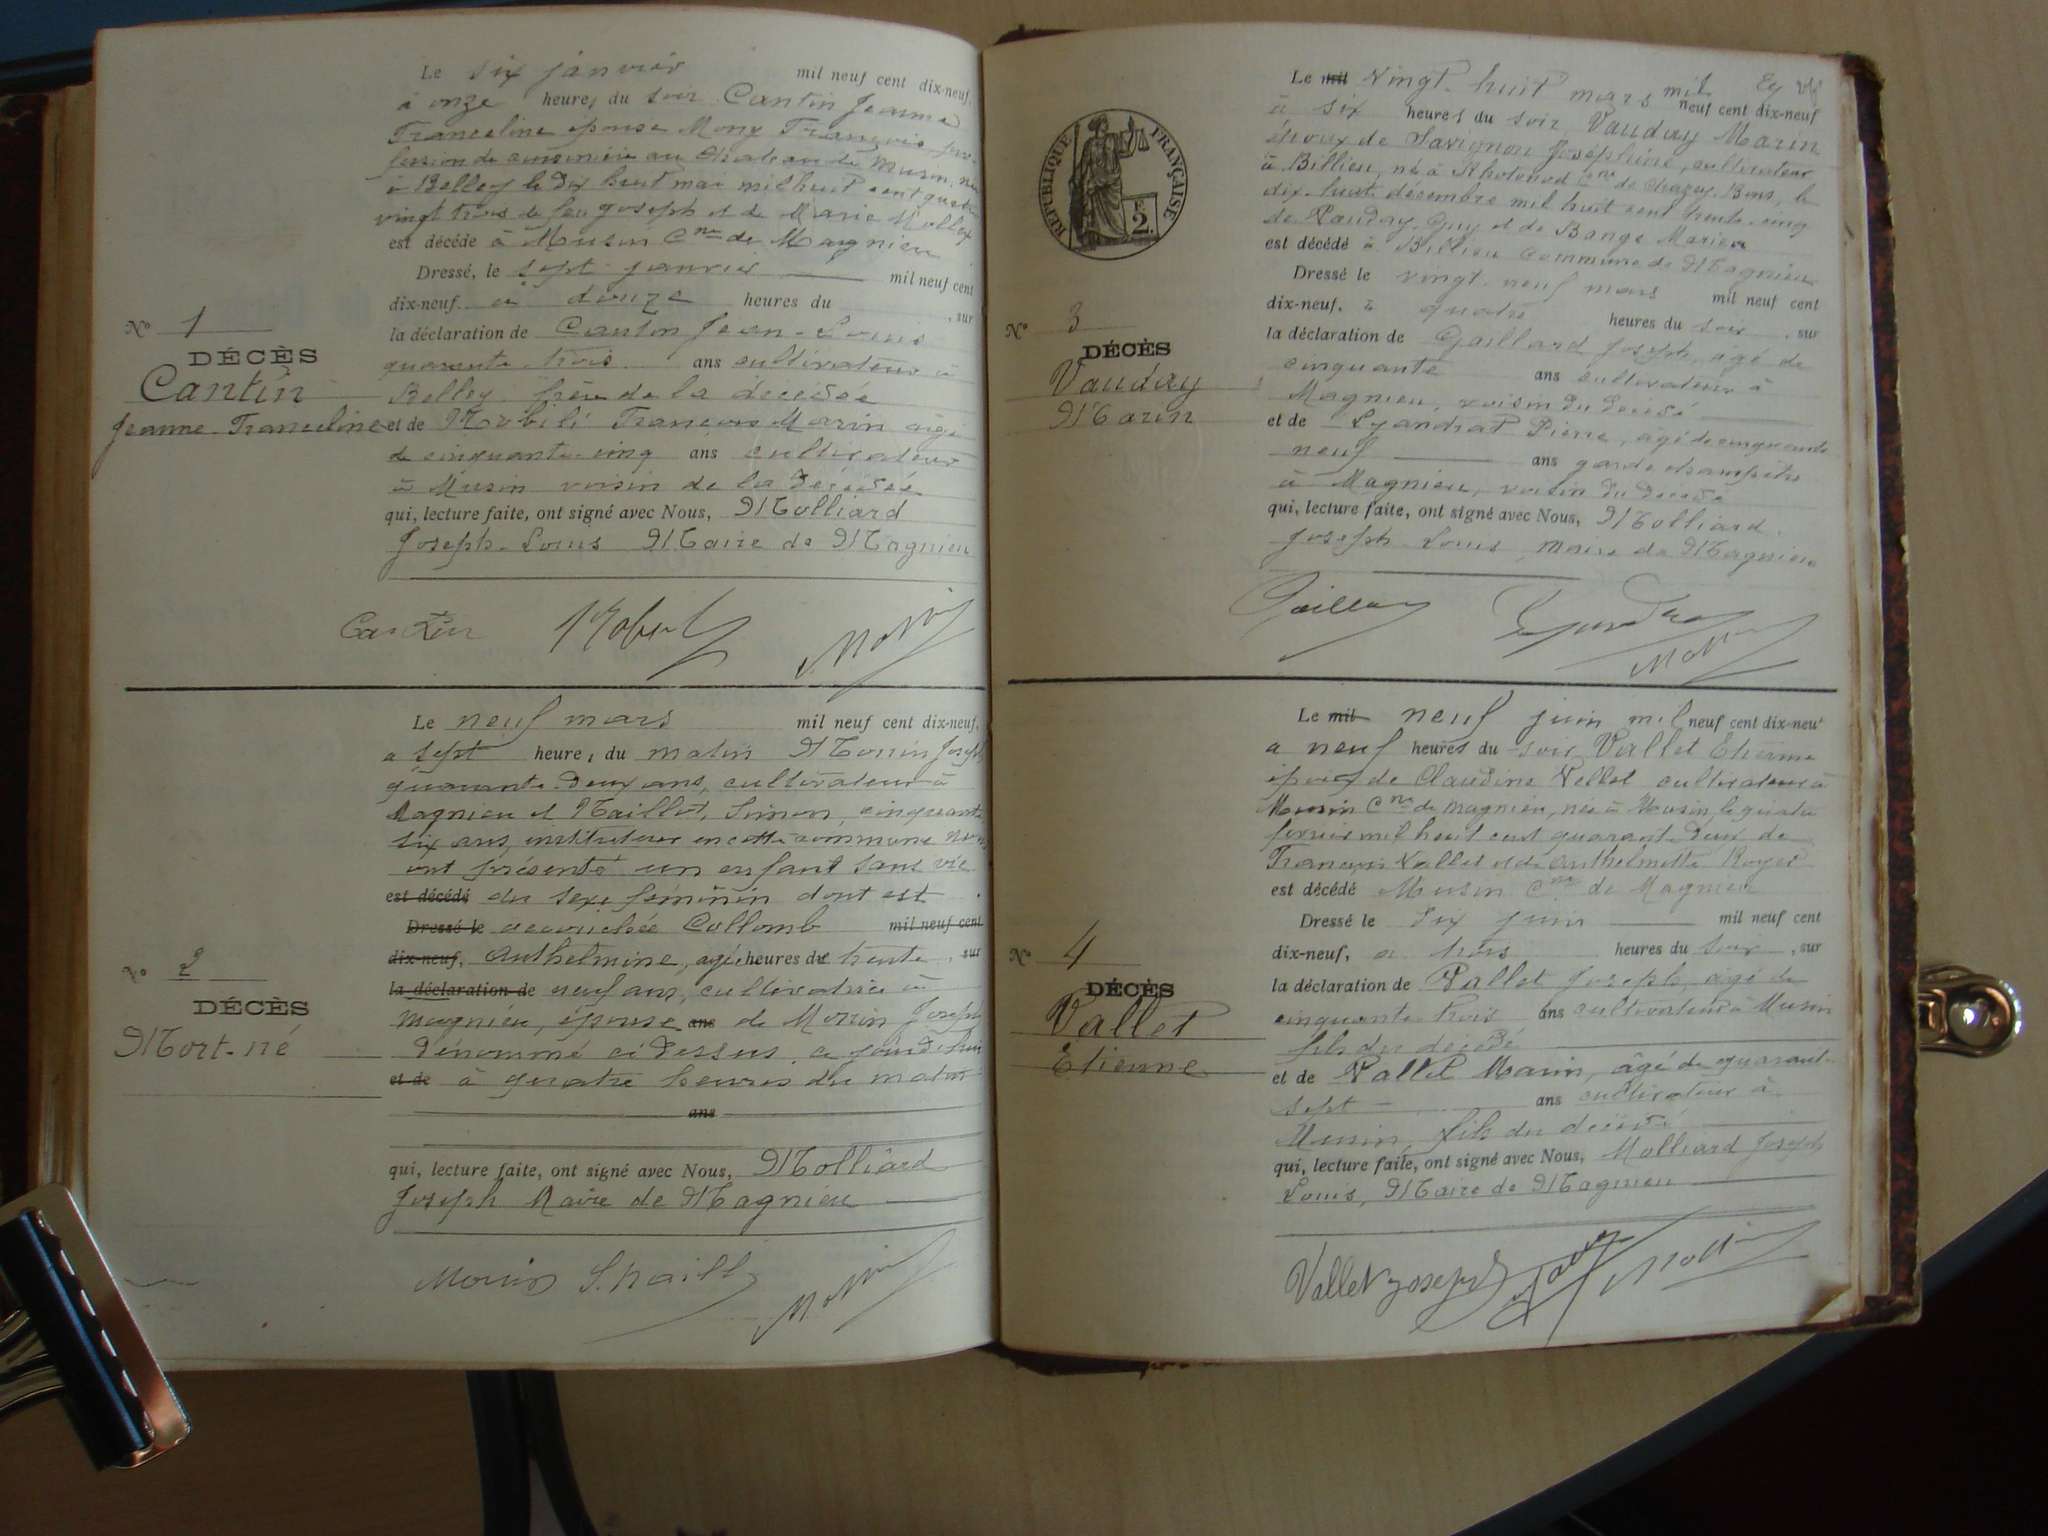 Le six janvier mil neuf cent dix-neuf,
à onze heures du soir Cantin Jeanne
Franceline épouse Mony François pro-
fession de cuisinière au château de Musin, née
à Belley le dix huit mai mil huit cent quatre
vingt trois de feu Joseph et de Marie Mollex
est décédé à Musin Cne de Magnieu
Dressé, le sept janvier mil neuf cent
dix-neuf à douze heures du , sur
No 1
la déclaration de Cantin Jean-Louis
DÉCÈS
quarante trois ans cultivateur à
Cantin
Belley frère de la décédée
Jeanne Franceline
et de François Marin âgé
de cinquante-cinq ans cultivateur
à Musin voisin de la décédée
qui, lecture faite, ont signé avec Nous, Molliard
Joseph-Louis Maire de Magnieu
Cantin
Le neuf mars mil neuf cent dix-neuf,
a sept heures du matin Morin Joseph
quarante deux ans, cultivateur à
Magnieu et Maillet, Simon, cinquante
six ans, instituteur en cette commune nous
ont présenté un enfant sans vie
est décédé du sexe féminin dont est
Dressé le accouchée Collomb mil neuf cent
dix-neuf, Anthelmine, agée heures du trente , sur
No 2
la déclaration de neuf ans, cultivatrice à
DÉCÈS
Magnieu, épouse ans de Morin Joseph
Mort-né
dénommé ci dessus, ce jourd'hui
et de à quatre heures du matin
ans
qui, lecture faite, ont signé avec Nous, Molliard
Joseph Maire de Magnieu
Morin
Le mil vingt-huit mars mil neuf cent dix-neuf
à six heures du soir Vauday Marin
époux de Savignon Joséphine, cultivateur
à Billieu, né à Rhotonod Cne de Chazey-Bons, le
dix-huit décembre mil huit cent trente-cinq
de Vauday Guy et de Bange Marien
est décédé à Billieu commune de Magnieu
RÉPUBLIQUE FRANÇAISE
F. 2.
Dressé le vingt-neuf mars mil neuf cent
dix-neuf, à quatre heures du soir , sur
No 3
la déclaration de Gaillard Joseph, agé de
DÉCÈS
cinquante ans cultivateur à
Vauday
Magnieu, voisin du décédé
Marin
et de Lyandrat Pierre, agé de cinquante
neuf ans garde champêtre
à Magnieu, voisin du décédé
qui, lecture faite, ont signé avec Nous, Molliard
Joseph Louis maire de Magnieu
Le mil neuf juin mil neuf cent dix-neuf
a neuf heures du soir Vallet Etienne
époux de Claudine Vellet cultivateur à
Musin Cne de Magnieu, né à Musin, le quatre
février mil huit cent quarante deux de
François Vallet et de Anthelmette Royer
est décédé Musin Cne de Magnieu
Dressé le dix juin mil neuf cent
dix-neuf, a trois heures du soir , sur
No 4
la déclaration de Vallet Joseph, agé de
DÉCÈS
cinquante trois ans cultivateur à Musin
Vallet
fils du décédé
Etienne
et de Vallet Marin, âgé de quarante
sept ans cultivateur à
Musin, fils du décédé
qui, lecture faite, ont signé avec Nous, Molliard Joseph
Louis, Maire de Magnieu
Vallet Joseph